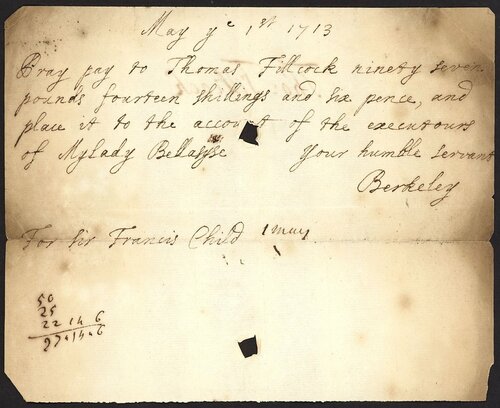 May ye 1st 1713
Pray pay to Thomas Fillcock ninety seven
pounds fourteen shillings and six pence, and
place it to the account of the executours
of Mylady Bellasyse Your humble servant
Berkeley
For Sir Francis Child 1 may
50
25
22 14 6
97 14 6